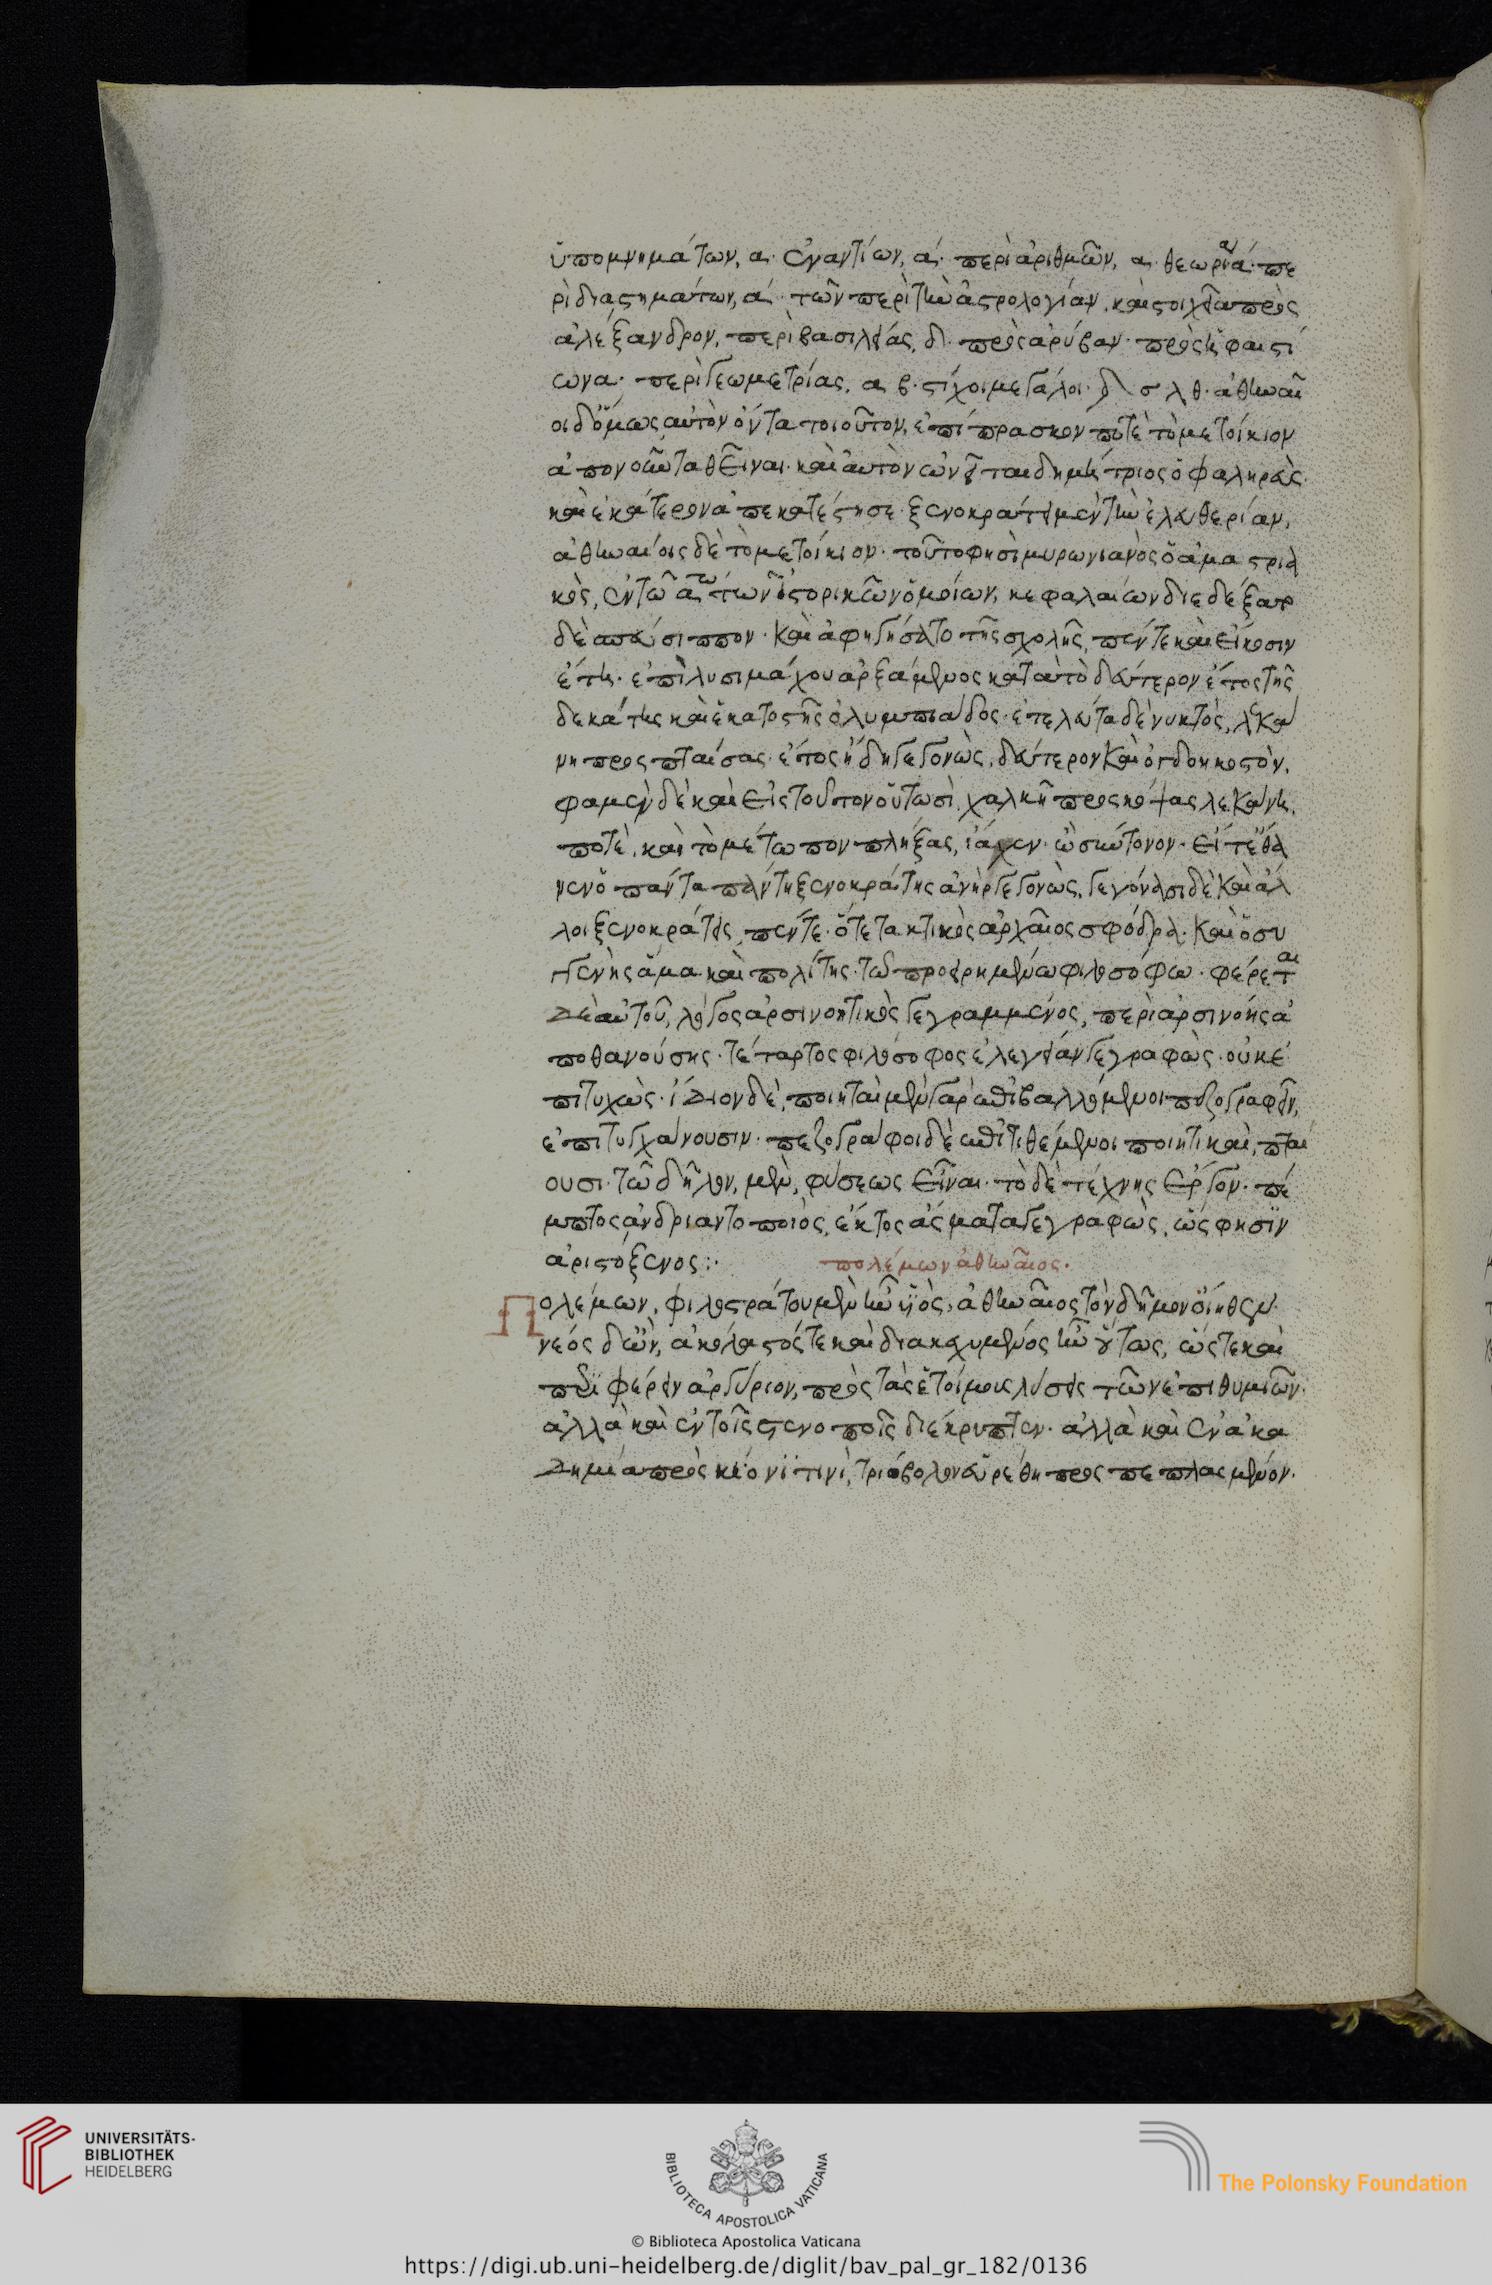 ὑπομνημάτων, α. ἐναντίων, α. περὶ ἀριθμῶν, α. θεωρία α. πε
ρὶ διαστημάτων, α. τῶν περὶ τὴν ἀστρολογίαν. καὶ στοιχεῖα πρὸς
ἀλέξανδρον, περὶ βασιλείας, δ. πρὸς ἀρύβαν. πρὸς ἡφαιστί
ωνα. περὶ γεωμετρίας, α β. στίχοι μεγάλοι. δ σλθ. ἀθηναῖ
οι δ' ὅμως αὐτὸν ὄντα τοιοῦτον, ἐπίπρασκον ποτὲ τὸ μετοίκιον
ἀπονοῦντα θεῖναι. καὶ αὐτὸν ὠνεῖται δημήτριος ὁ φαληρεὺς.
καὶ ἑκάτερον ἀπεκατέστησε. ξενοκράτει μὲν τὴν ἐλευθερίαν,
ἀθηναίοις δὲ τὸ μετοίκιον. τοῦτο φησὶ μυρωνιανὸς ὁ ἀμαστρια
κὸς, ἐν τῶ α τω τῶν ἱστορικῶν ὁμοίων, κεφαλαίων διεδέξατο
δὲ σπεύσιππον. καὶ ἀφηγήσατο τῆς σχολῆς, πέντε καὶ εἴκοσιν
ἔτη. ἐπὶ λυσιμάχου ἀρξάμενος κατὰ τὸ δεύτερον ἔτος τῆς
δεκάτης καὶ ἑκατοστῆς ὀλυμπιάδος. ἐτελεύτα δὲ νυκτὸς, λεκά
νη προσπταίσας. ἔτος ἤδη γεγονὼς, δεύτερον καὶ ὀγδοηκοστὸν.
φαμὲν δὲ καὶ εἰς τοῦτον οὕτωσὶ. χαλκῆ προσκόψας λεκάνη.
ποτὲ, καὶ τὸ μέτωπον πλήξας, ἰάχεν. ὢ σύντονον. εἴτ' ἔθα
νεν ὁ πάντα πάντη ξενοκράτης ἀνὴρ γεγονὼς, γεγόνασι δὲ καὶ ἄλ
λοι ξενοκράτεις πέντε. ὅτε τακτικὸς ἀρχαῖος σφόδρα. καὶ ὁ συ
γγενὴς ἅμα καὶ πολίτης. τῶ προειρημένω φιλοσόφω. φέρεται
δὲ αὐτοῦ, λόγος ἀρσινοητικὸς γεγραμμένος, περὶ ἀρσινόης ἀ
ποθανούσης. τέταρτος φιλόσοφος ἐλεγείαν γεγραφὼς. οὐκ ἐ
πιτυχὼς. ἴδιον δὲ, ποιηταὶ μὲν γὰρ ἐπιβαλλόμενοι πεζογραφεῖν,
ἐπιτυγχάνουσιν. πεζογράφοι δὲ ἐπιτιθέμενοι ποιητικῆ, πταί
ουσι. τῶ δῆλον, μὲν, φύσεως εἶναι. τὸ δὲ τέχνης ἔργον. πέ
μπτος ἀνδριαντοποιός, ἕκτος ἄσματα γεγραφὼς, ὥς φησὶν
ἀριστόξενος:.
πολέμων ἀθηναῖος.
Πολέμων, φιλοστράτου μὲν ἦν υἱὸς, ἀθηναῖος τὸν δῆμον οἴηθεν.
νέος δ' ὢν, ἀκόλαστός τε καὶ διακεχυμένος ἦν οὕτως, ὥστε καὶ
περιφέρειν ἀργύριον, πρὸς τὰς ἑτοίμους λύσεις τῶν ἐπιθυμιῶν.
ἀλλὰ καὶ ἐν τοῖς στενοποῖς διέκρυπτεν. ἀλλὰ καὶ ἐν ἀκα
δημία πρὸς κίονί τινὶ, τριόβολον εὑρέθη προσπεπλασμένον.
UNIVERSITÄTS-
BIBLIOTHEK
HEIDELBERG
BIBLIOTECA APOSTOLICA VATICANA
The Polonsky Foundation
© Biblioteca Apostolica Vaticana
https://digi.ub.uni-heidelberg.de/diglit/bav_pal_gr_182/0136